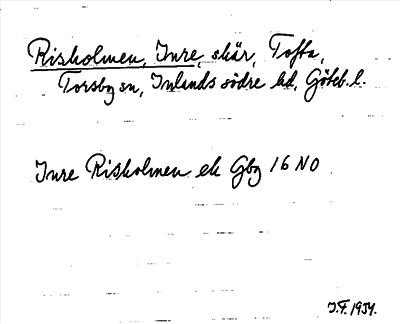 Risholmen, Inre, skär, Tofta,
Torsby sn, Inlands södre hd, Göteb. l.
Inre Risholmen ek Gbg 16 NO
J.F. 1934.